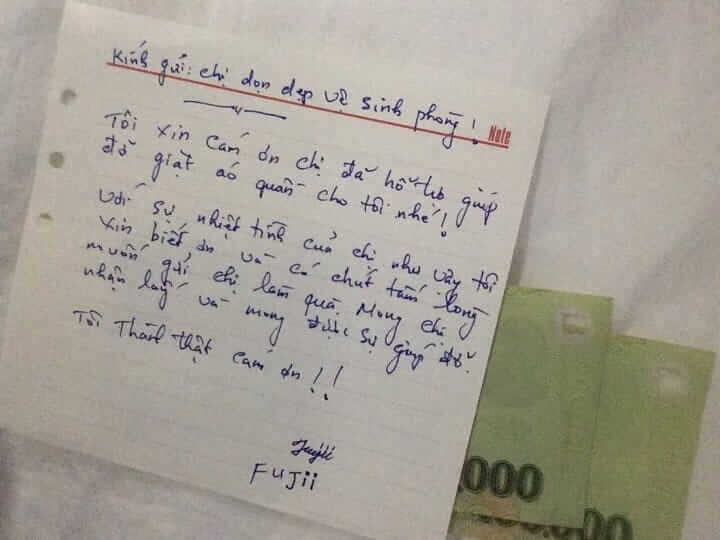 Kính gửi: chị dọn dẹp vệ sinh phòng!
Note
Tôi xin cám ơn chị đã hỗ trợ giúp
đỡ giặt áo quần cho tôi nhé!
Với sự nhiệt tình của chị như vậy tôi
xin biết ơn và có chút tấm lòng
muốn gửi chị làm quà. Mong chị
nhận lấy và mong được sự giúp đỡ.
Tôi Thành thật cám ơn!!
Fujii
FUJii
.000
100.000